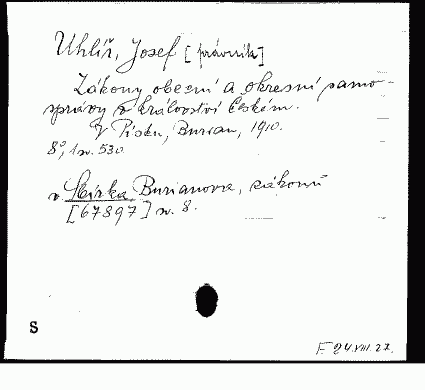 Uhlíř, Josef [právník]
Zákony obecní a okresní samo-
správy v království Českém.
V Písku, Burian, 1910.
8°, 1 sv. 530.
v Sbírka Burianova, zákonů
[67897] sv. 8.
S
F. 24.VIII.27.